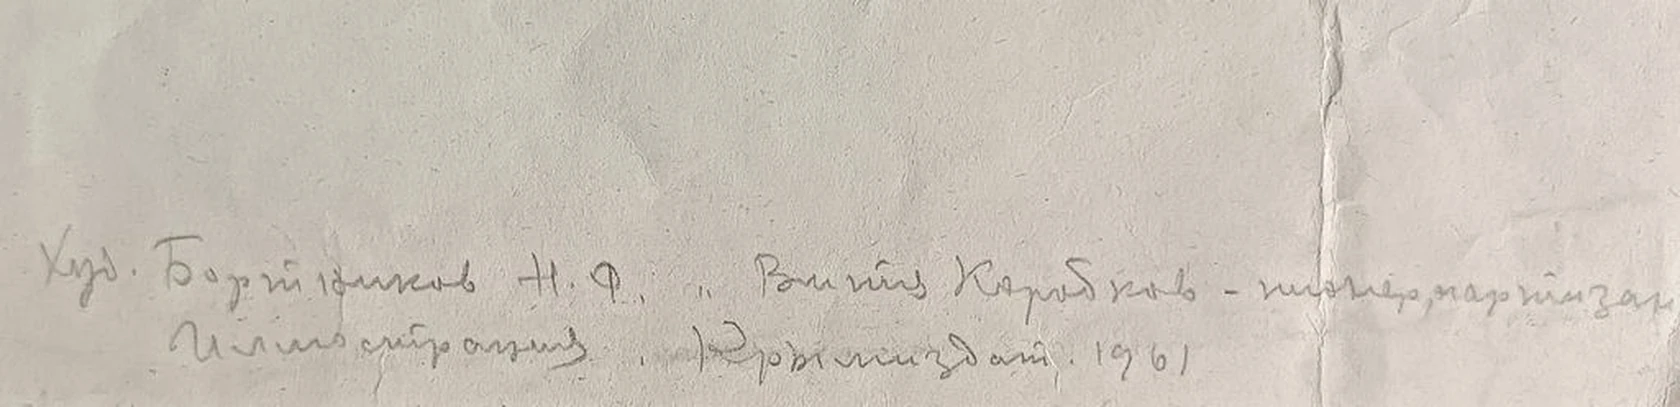 Худ. Бортников Н.Ф. „ Витя Коробков - пионер, партизан
Иллюстрация. Крымиздат. 1961